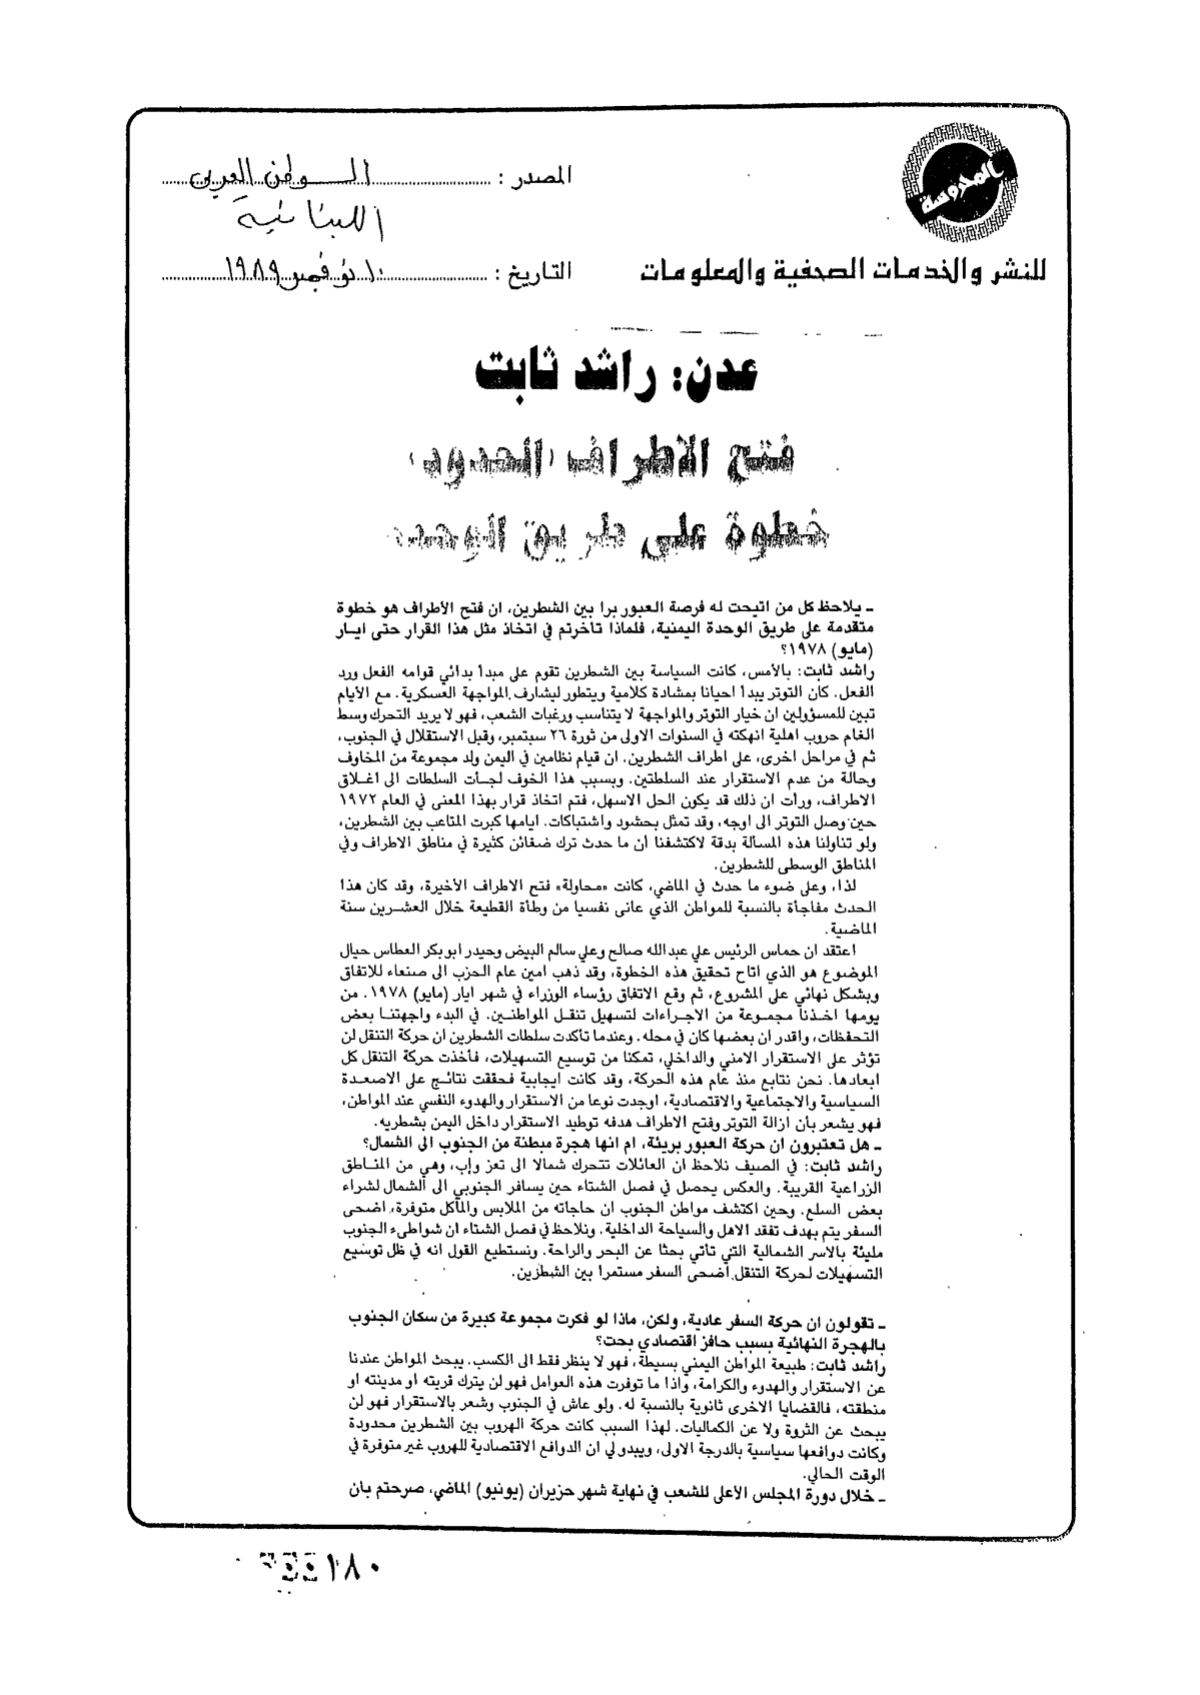 المحروسة
المصدر : الوطن العربي
اللبنانية
للنشر والخدمات الصحفية والمعلومات
التاريخ : ١٠ نوفمبر ١٩٨٩
عدن: راشد ثابت
فتح الأطراف (الحدود)
خطوة على طريق الوحدة
ـ يلاحظ كل من اتيحت له فرصة العبور برا بين الشطرين، ان فتح الأطراف هو خطوة
متقدمة على طريق الوحدة اليمنية، فلماذا تأخرتم في اتخاذ مثل هذا القرار حتى ايار
(مايو) ١٩٧٨؟
راشد ثابت: بالأمس، كانت السياسة بين الشطرين تقوم على مبدأ بدائي قوامه الفعل ورد
الفعل. كان التوتر يبدأ احيانا بمشادة كلامية ويتطور ليشارف المواجهة العسكرية. مع الأيام
تبين للمسؤولين ان خيار التوتر والمواجهة لا يتناسب ورغبات الشعب، فهو لا يريد التحرك وسط
الغام حروب اهلية انهكته في السنوات الاولى من ثورة ٢٦ سبتمبر، وقبل الاستقلال في الجنوب،
ثم في مراحل اخرى، على اطراف الشطرين. ان قيام نظامين في اليمن ولد مجموعة من المخاوف
وحالة من عدم الاستقرار عند السلطتين. وبسبب هذا الخوف لجأت السلطات الى اغلاق
الاطراف، ورأت ان ذلك قد يكون الحل الاسهل، فتم اتخاذ قرار بهذا المعنى في العام ١٩٧٢
حين وصل التوتر الى اوجه، وقد تمثل بحشود واشتباكات. ايامها كبرت المتاعب بين الشطرين،
ولو تناولنا هذه المسألة بدقة لاكتشفنا أن ما حدث ترك ضغائن كثيرة في مناطق الاطراف وفي
المناطق الوسطى للشطرين.
لذا، وعلى ضوء ما حدث في الماضي، كانت «محاولة» فتح الاطراف الأخيرة، وقد كان هذا
الحدث مفاجأة بالنسبة للمواطن الذي عانى نفسيا من وطأة القطيعة خلال العشرين سنة
الماضية.
اعتقد ان حماس الرئيس علي عبدالله صالح وعلي سالم البيض وحيدر ابوبكر العطاس حيال
الموضوع هو الذي اتاح تحقيق هذه الخطوة، وقد ذهب امين عام الحزب الى صنعاء للاتفاق
وبشكل نهائي على المشروع، ثم وقع الاتفاق رؤساء الوزراء في شهر ايار (مايو) ١٩٧٨. من
يومها اخذنا مجموعة من الاجراءات لتسهيل تنقل المواطنين. في البدء واجهتنا بعض
التحفظات، واقدر ان بعضها كان في محله. وعندما تأكدت سلطات الشطرين ان حركة التنقل لن
تؤثر على الاستقرار الامني والداخلي، تمكنا من توسيع التسهيلات، فأخذت حركة التنقل كل
ابعادها. نحن نتابع منذ عام هذه الحركة، وقد كانت ايجابية فحققت نتائج على الاصعدة
السياسية والاجتماعية والاقتصادية، اوجدت نوعا من الاستقرار والهدوء النفسي عند المواطن،
فهو يشعر بأن ازالة التوتر وفتح الاطراف هدفه توطيد الاستقرار داخل اليمن بشطريه.
ـ هل تعتبرون ان حركة العبور بريئة، ام انها هجرة مبطنة من الجنوب الى الشمال؟
راشد ثابت: في الصيف نلاحظ ان العائلات تتحرك شمالا الى تعز وإب، وهي من المناطق
الزراعية القريبة. والعكس يحصل في فصل الشتاء حين يسافر الجنوبي الى الشمال لشراء
بعض السلع. وحين اكتشف مواطن الجنوب ان حاجاته من الملابس والمأكل متوفرة، اضحى
السفر يتم بهدف تفقد الاهل والسياحة الداخلية. ونلاحظ في فصل الشتاء ان شواطىء الجنوب
مليئة بالاسر الشمالية التي تأتي بحثا عن البحر والراحة. ونستطيع القول انه في ظل توسيع
التسهيلات لحركة التنقل اضحى السفر مستمرا بين الشطرين.
ـ تقولون ان حركة السفر عادية، ولكن، ماذا لو فكرت مجموعة كبيرة من سكان الجنوب
بالهجرة النهائية بسبب حافز اقتصادي بحت؟
راشد ثابت: طبيعة المواطن اليمني بسيطة، فهو لا ينظر فقط الى الكسب. يبحث المواطن عندنا
عن الاستقرار والهدوء والكرامة، واذا ما توفرت هذه العوامل فهو لن يترك قريته او مدينته او
منطقته، فالقضايا الاخرى ثانوية بالنسبة له. ولو عاش في الجنوب وشعر بالاستقرار فهو لن
يبحث عن الثروة ولا عن الكماليات. لهذا السبب كانت حركة الهروب بين الشطرين محدودة
وكانت دوافعها سياسية بالدرجة الاولى، ويبدو لي ان الدوافع الاقتصادية للهروب غير متوفرة في
الوقت الحالي.
ـ خلال دورة المجلس الأعلى للشعب في نهاية شهر حزيران (يونيو) الماضي، صرحتم بان